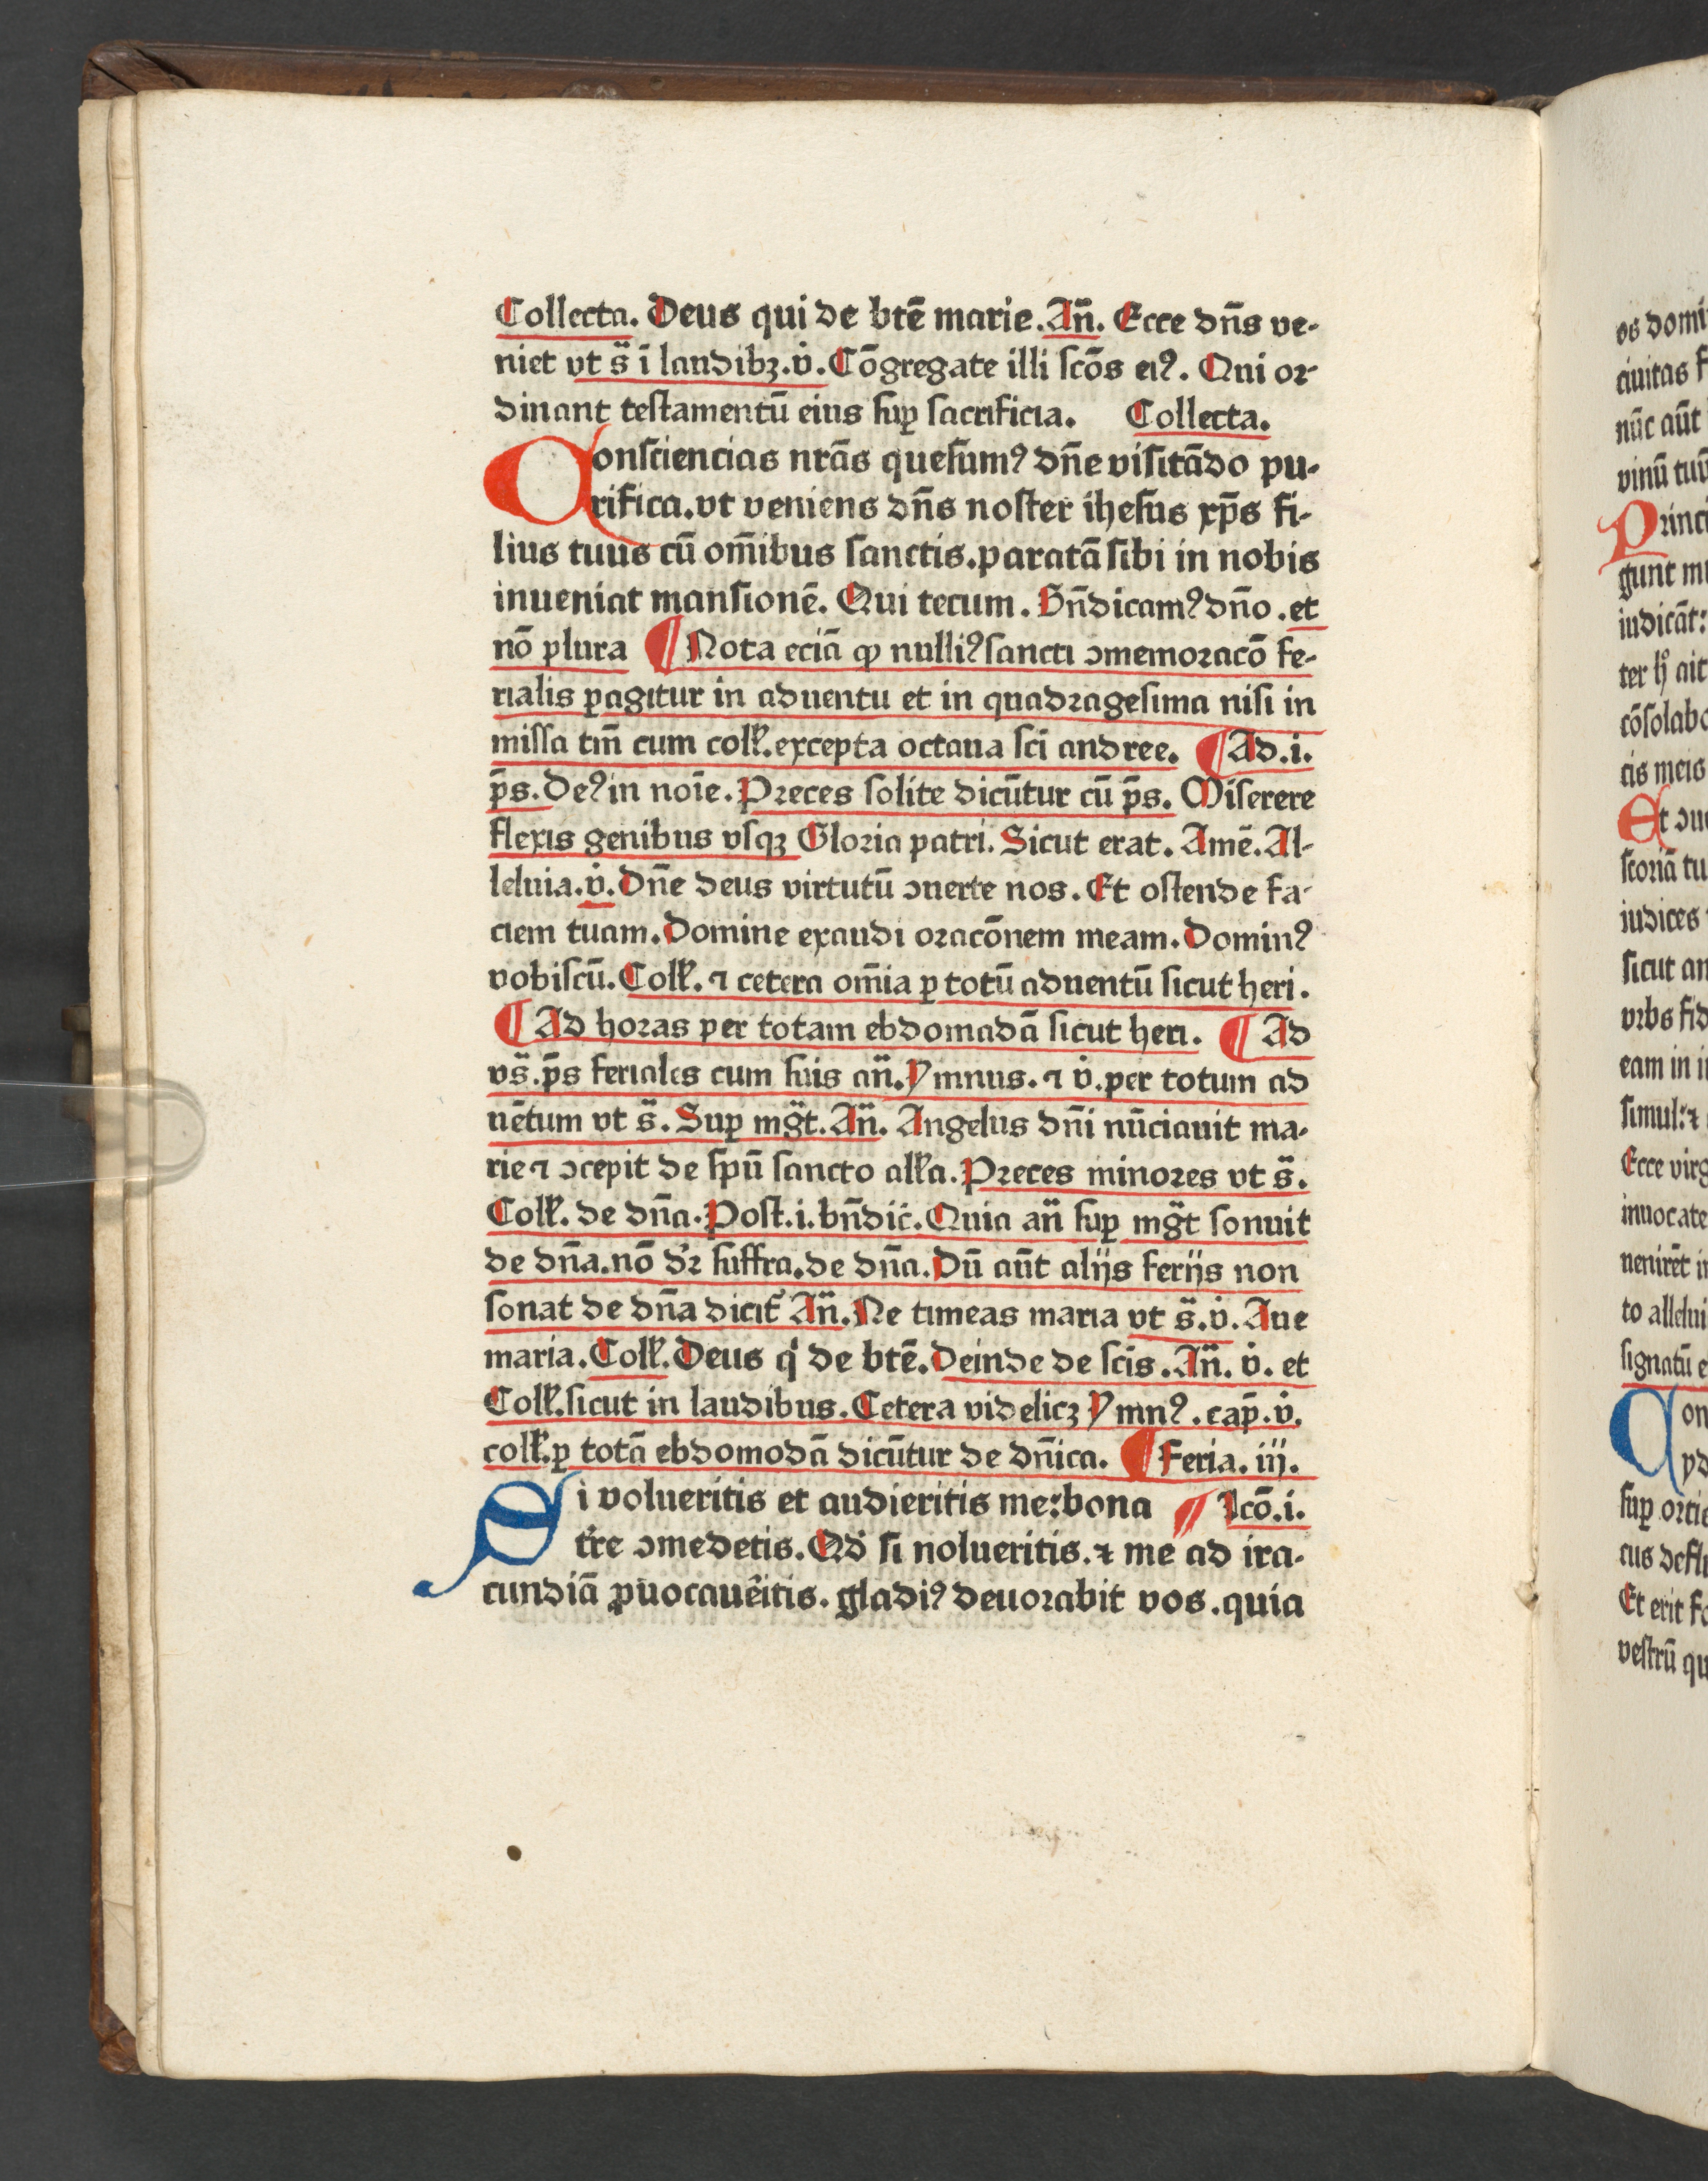 Collecta. Deus qui de btē marie. An̄. Ecce dn̄s ve-
niet vt s̄ ī laudibꝫ. v̇. Cōgregate illi scōs eiꝰ. Qui or-
dinant testamentū eius suꝑ sacrificia. Collecta.
Consciencias nrās quesumꝰ dn̄e visitādo pu-
rifica. vt veniens dn̄s noster ihesus xp̄s fi-
lius tuus cū om̄ibus sanctis. paratā sibi in nobis
inueniat mansionē. Qui tecum. Bn̄dicamꝰ dn̄o. et
nō plura ¶ Nota eciā ꝙ nulliꝰ sancti ↄmemoracō fe-
rialis ꝑagitur in aduentu et in quadragesima nisi in
missa tm̄ cum coll'. excepta octaua sci andree. ¶ Ad. i.
p̄s. Deꝰ in noīe. Preces solite dicūtur cū p̄s. Miserere
flexis genibus vsqꝫ Gloria patri. Sicut erat. Amē. Al-
leluia. v̇. Dn̄e deus virtutū ↄuerte nos. Et ostende fa-
ciem tuam. Domine exaudi oracōnem meam. Dominꝰ
vobiscū. Coll'. ⁊ cetera om̄ia ꝑ totū aduentū sicut heri.
¶ Ad horas per totam ebdomadā sicut heri. ¶ Ad
vs̄. p̄s feriales cum suis an̄. Ymnus. ⁊ v̇. per totum ad
uētum vt s̄. Suꝑ mḡt. An̄. Angelus dn̄i nūciauit ma-
rie ⁊ ↄcepit de spū sancto all'a. Preces minores vt s̄.
Coll'. de dn̄a. Post. i. bn̄dic̄. Quia an̄ suꝑ mḡt sonuit
de dn̄a. nō dꝛ̄ suffra. de dn̄a. Dū aūt alijs ferijs non
sonat de dn̄a dicit' An̄. Ne timeas maria vt s̄. v̇. Aue
maria. Coll'. Deus qͥ de btē. Deinde de scīs. An̄. v̇. et
Coll'. sicut in laudibus. Cetera videlicꝫ Ymnꝰ. cap̄. v̇.
coll'. ꝑ totā ebdomodā dicūtur de dn̄ica. ¶ Feria. iij.
Si volueritis et audieritis me: bona ¶ Lcō. i.
tr̄re ↄmedetis. Qd' si nolueritis. ⁊ me ad ira-
cundiā ꝓuocauēitis. gladiꝰ deuorabit vos. quia